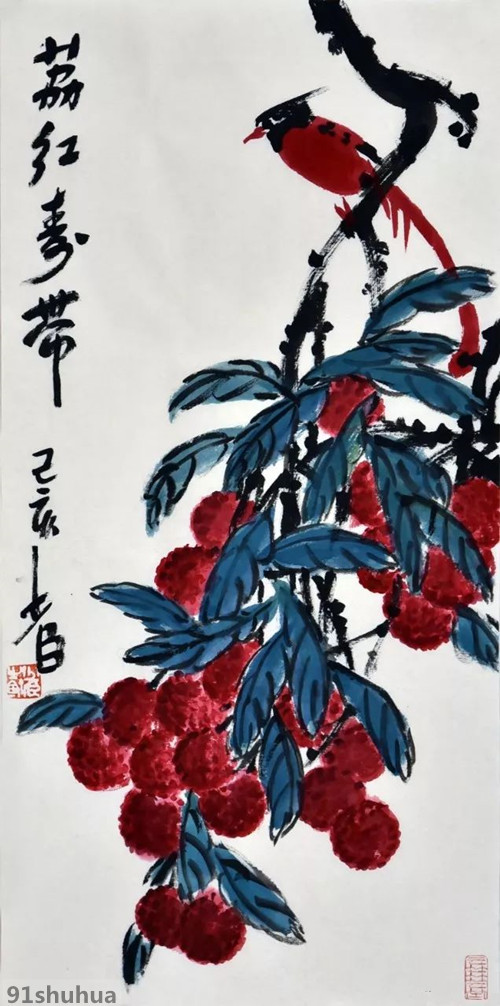 荔红寿带
己亥
91shuhua